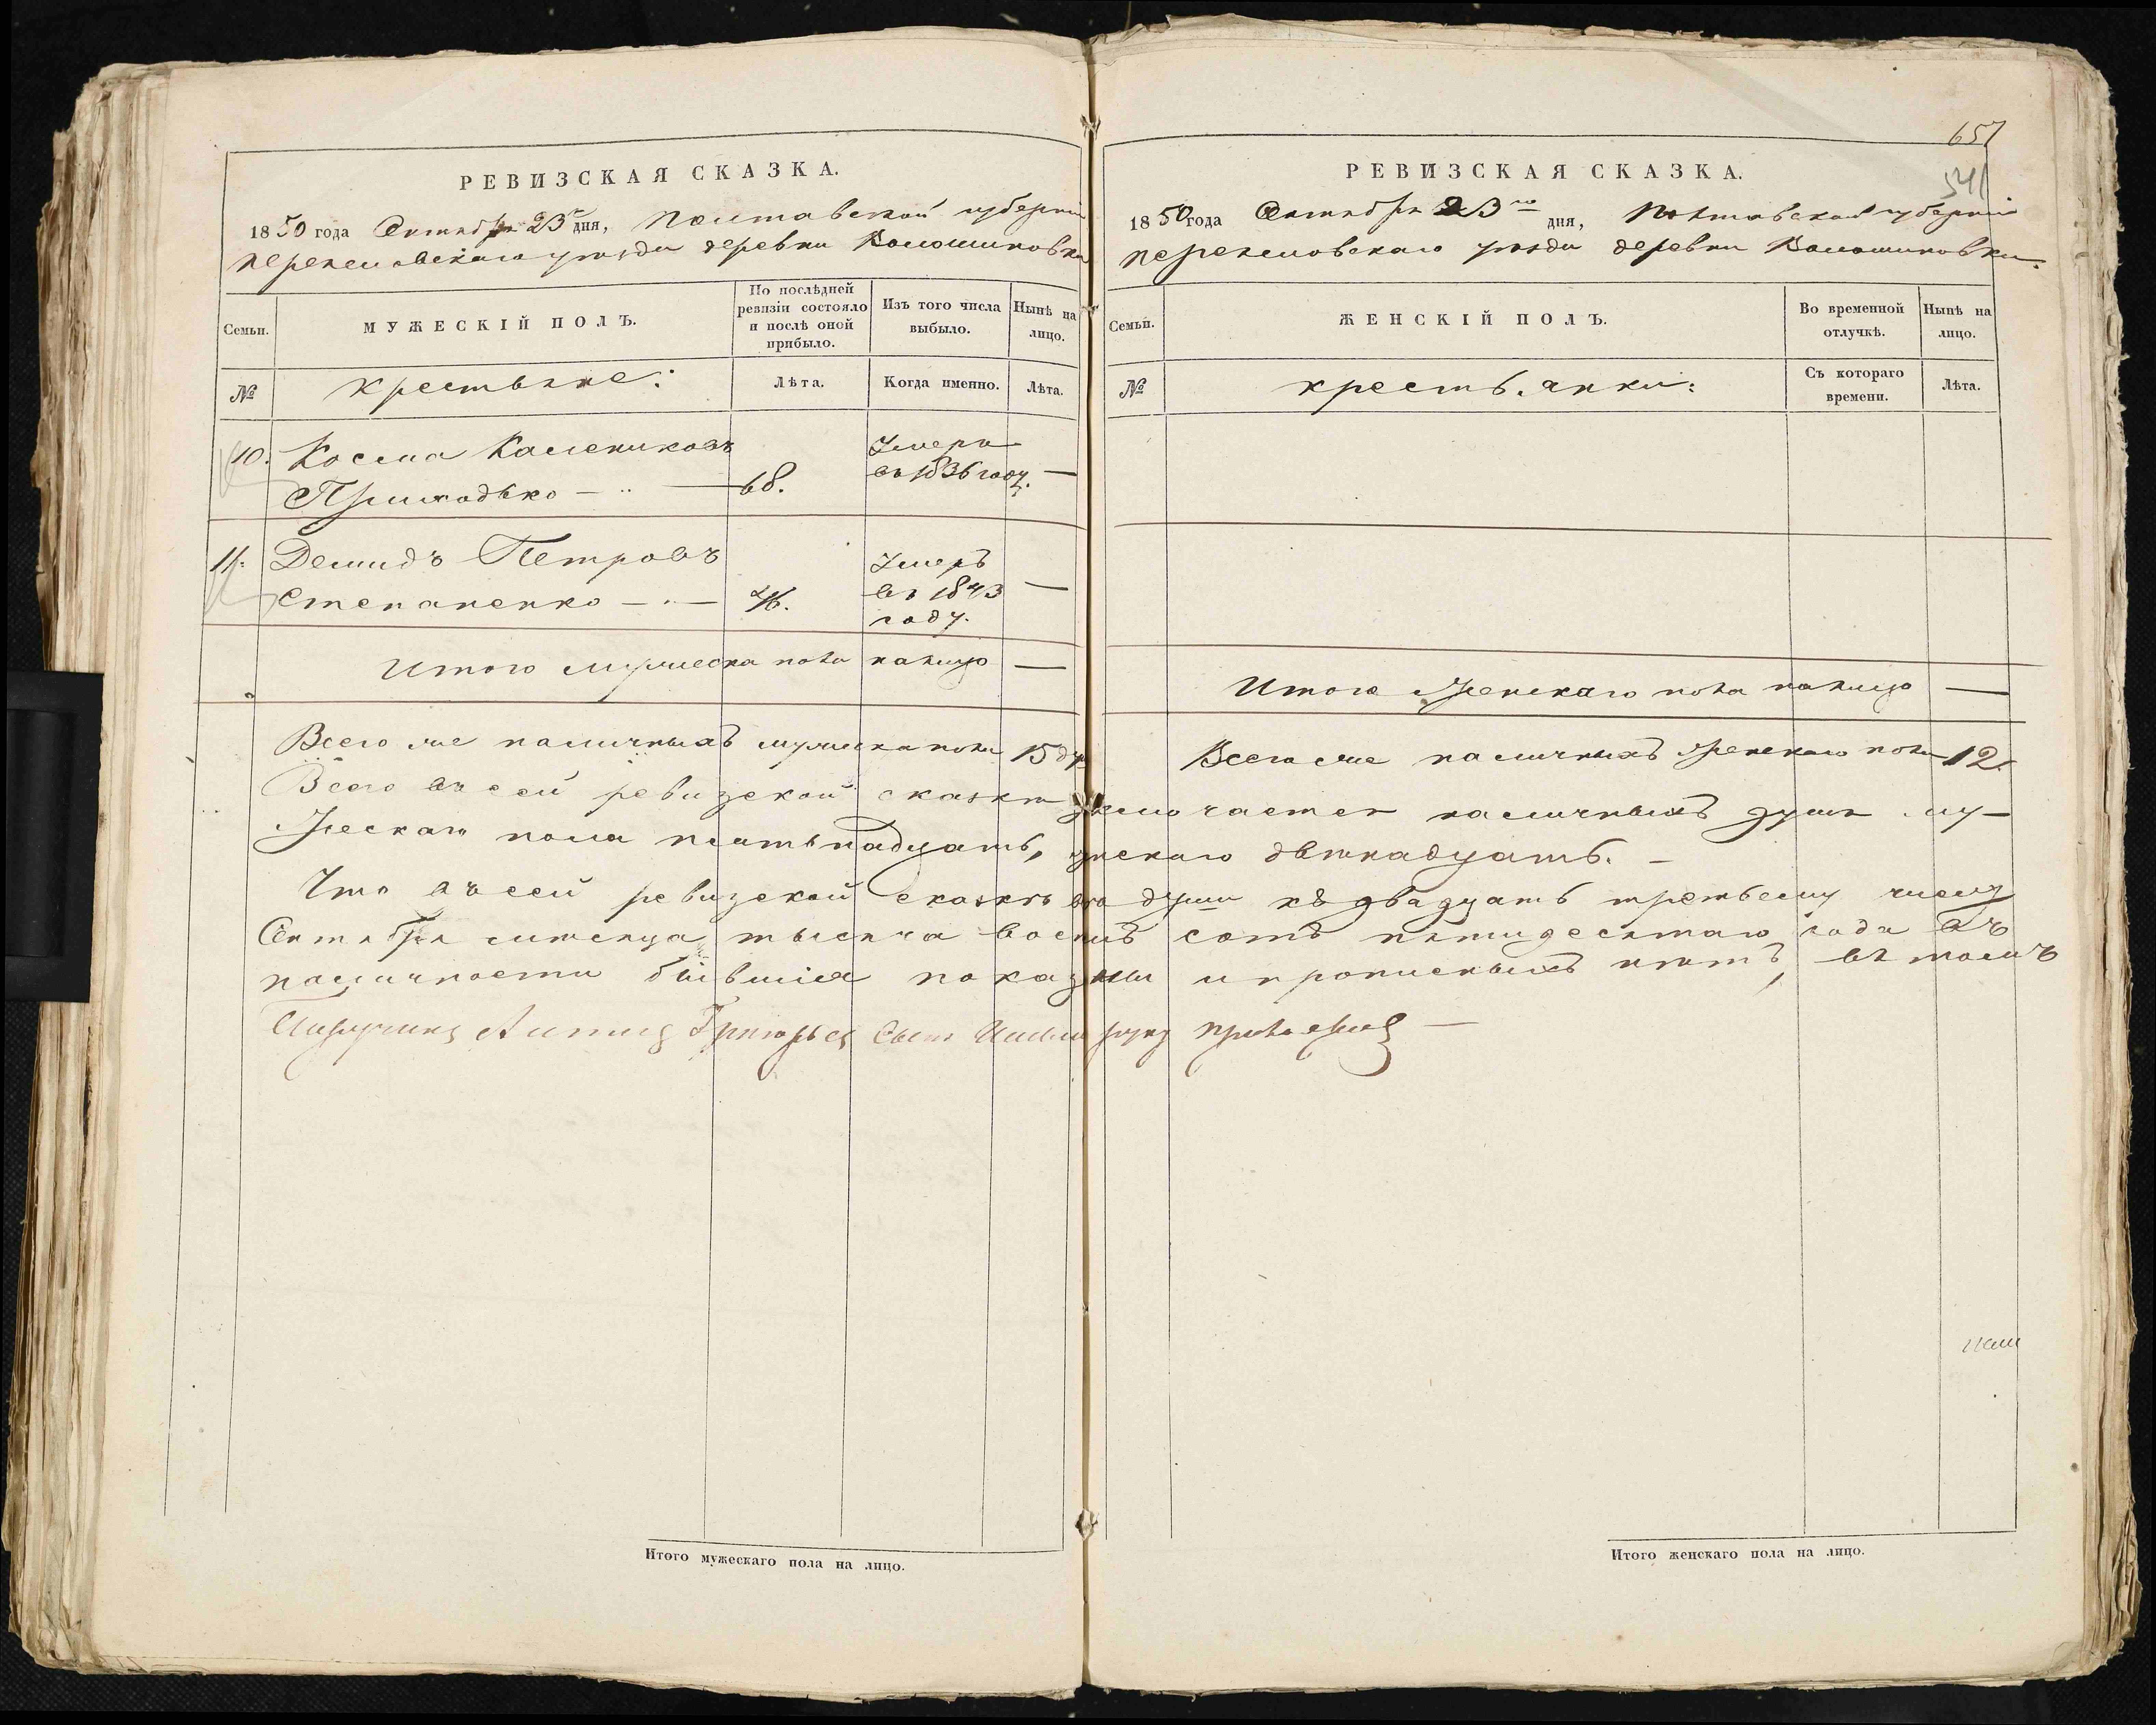 РЕВИЗСКАЯ СКАЗКА.
1850 года Октября 23 дня, Полтавской губернии
переясловскаго уезда деревни Волошиновки
Семьи.
МУЖЕСКІЙ ПОЛЪ.
По послѣдней ревизіи состояло и послѣ оной прибыло.
Изъ того числа выбыло.
Нынѣ на лицо.
№
крестьяне:
Лѣта.
Когда именно.
Лѣта.
10. Косма Калениковъ Умеръ
Приходько — 68. въ 1836 году. —
11. Демидъ Петровъ Умеръ
Степаненко — въ 1843 —
году.
Итого мужеска пола налицо —
Всего же наличныхъ мужеска пола 15 ду
Всего въ сей ревизской сказки
жескаго пола пятьнадцать,
Что въ сей ревизской сказкѣ все
Октября месяца тысяча восемъ
наличности бывшія показаны
Григорьев
Итого мужескаго пола на лицо.
657
541
РЕВИЗСКАЯ СКАЗКА.
1850 года Октября 23го дня, Полтавской губерніи
переясловскаго уезда деревни Волошиновки.
Семьи.
ЖЕНСКІЙ ПОЛЪ.
Во временной отлучкѣ.
Нынѣ на лицо.
№
крестьянки:
Съ котораго времени.
Лѣта.
Итого женскаго пола налицо —
Всего же наличныхъ женскаго пола 12.
заключается наличныхъ душъ му-
женскаго двенадцать. —
души къ двадцать третьему числу
сотъ пятидесятаго года въ
и прописныхъ нетъ, въ томъ
руку приложилъ —
Итого женскаго пола на лицо.